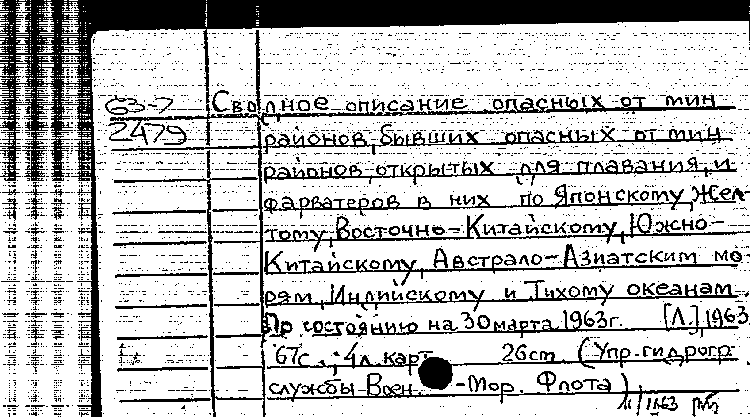 63-7 Сводное описание опасных от мин
2479 районов, бывших опасных от мин
районов, открытых для плавания, и
фарватеров в них по Японскому, Жел-
тому, Восточно-Китайскому, Южно-
Китайскому, Австрало-Азиатским мо-
рям, Индийскому и Тихому океанам.
По состоянию на 30 марта 1963 г. [Л.], 1963
67 с.; 4 л. карт. 26 cm. (Упр. гидрогр
службы Воен.-Мор. Флота)